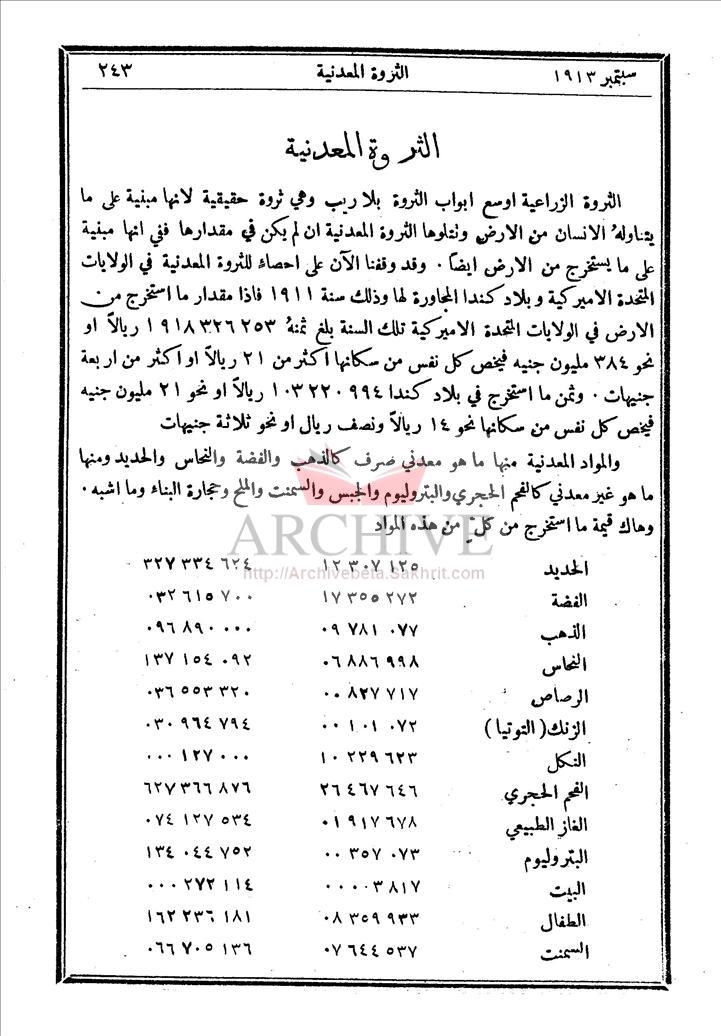 سبتمبر ١٩١٣ الثروة المعدنية ٢٤٣
الثروة المعدنية
الثروة الزراعية اوسع ابواب الثروة بلا ريب وهي ثروة حقيقية لانها مبنية على ما
يتناولهُ الانسان من الارض ونتلوها الثروة المعدنية ان لم يكن في مقدارها ففي انها مبنية
على ما يستخرج من الارض ايضاً . وقد وقفنا الآن على احصاءٍ للثروة المعدنية في الولايات
المتحدة الاميركية وبلاد كندا المجاورة لها وذلك سنة ١٩١١ فاذا مقدار ما استخرج من
الارض في الولايات المتحدة الاميركية تلك السنة بلغ ثمنهُ ١٩١٨٣٢٦٢٥٣ ريالاً او
نحو ٣٨٤ مليون جنيه فيخص كل نفس من سكانها اكثر من ٢١ ريالاً او اكثر من اربعة
جنيهات . وثمن ما استخرج في بلاد كندا ١٠٣٢٢٠٩٩٤ ريالاً او نحو ٢١ مليون جنيه
فيخص كل نفس من سكانها نحو ١٤ ريالاً ونصف ريال او نحو ثلاثة جنيهات
والمواد المعدنية منها ما هو معدني صرف كالذهب والفضة والنحاس والحديد ومنها
ما هو غير معدني كالفحم الحجري والبتروليوم والجبس والسمنت والملح وحجارة البناء وما اشبه .
وهاك قيمة ما استخرج من كلٍ من هذه المواد
ARCHIVE
http://Archivebeta.Sakhrit.com
الحديد ١٢٣٠٧١٢٥ ٣٢٧٣٣٤٦٢٤
الفضة ١٧٣٥٥٢٧٢ ٠٣٢٦١٥٧٠٠
الذهب ٠٩٧٨١٠٧٧ ٠٩٦٨٩٠٠٠٠
النحاس ٠٦٨٨٦٩٩٨ ١٣٧١٥٤٠٩٢
الرصاص ٠٠٨٢٧٧١٧ ٠٣٦٥٥٣٣٢٠
الزنك (التوتيا) ٠٠١٠١٠٧٢ ٠٣٠٩٦٤٧٩٤
النكل ١٠٢٢٩٦٢٣ ٠٠٠١٢٧٠٠٠
الفحم الحجري ٢٦٤٦٧٦٤٦ ٦٢٧٣٦٦٨٧٦
الغاز الطبيعي ٠١٩١٧٦٧٨ ٠٧٤١٢٧٥٣٤
البتروليوم ٠٠٣٥٧٠٧٣ ١٣٤٠٤٤٧٥٢
البيت ٠٠٠٠٣٨١٧ ٠٠٠٢٧٢١١٤
الطفال ٠٨٣٥٩٩٣٣ ١٦٢٢٣٦١٨١
السمنت ٠٧٦٤٤٥٣٧ ٠٦٦٧٠٥١٣٦